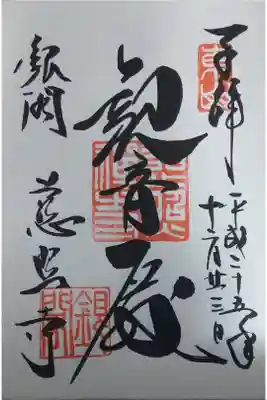 奉拝 平成二十五年
十二月廿三日
観音殿
銀閣 慈照寺
銀閣